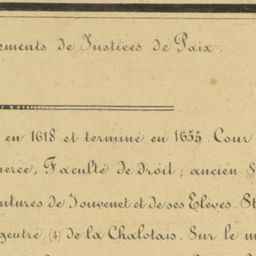 ements de Justices de Paix.
en 1618 et terminé en 1655. Cour
erce, Faculté de droit; ancien
ntures de Jouvenet et de ses Elèves. St
geutre (4) de la Chalotais. Sur le m